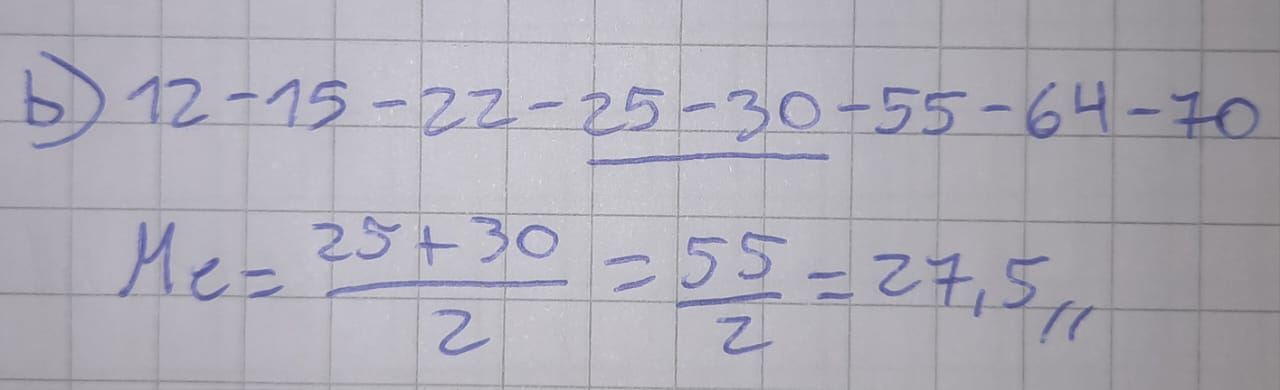 b) 12-15-22-25-30-55-64-70
Me = 25+30/2 = 55/2 = 27,5,,